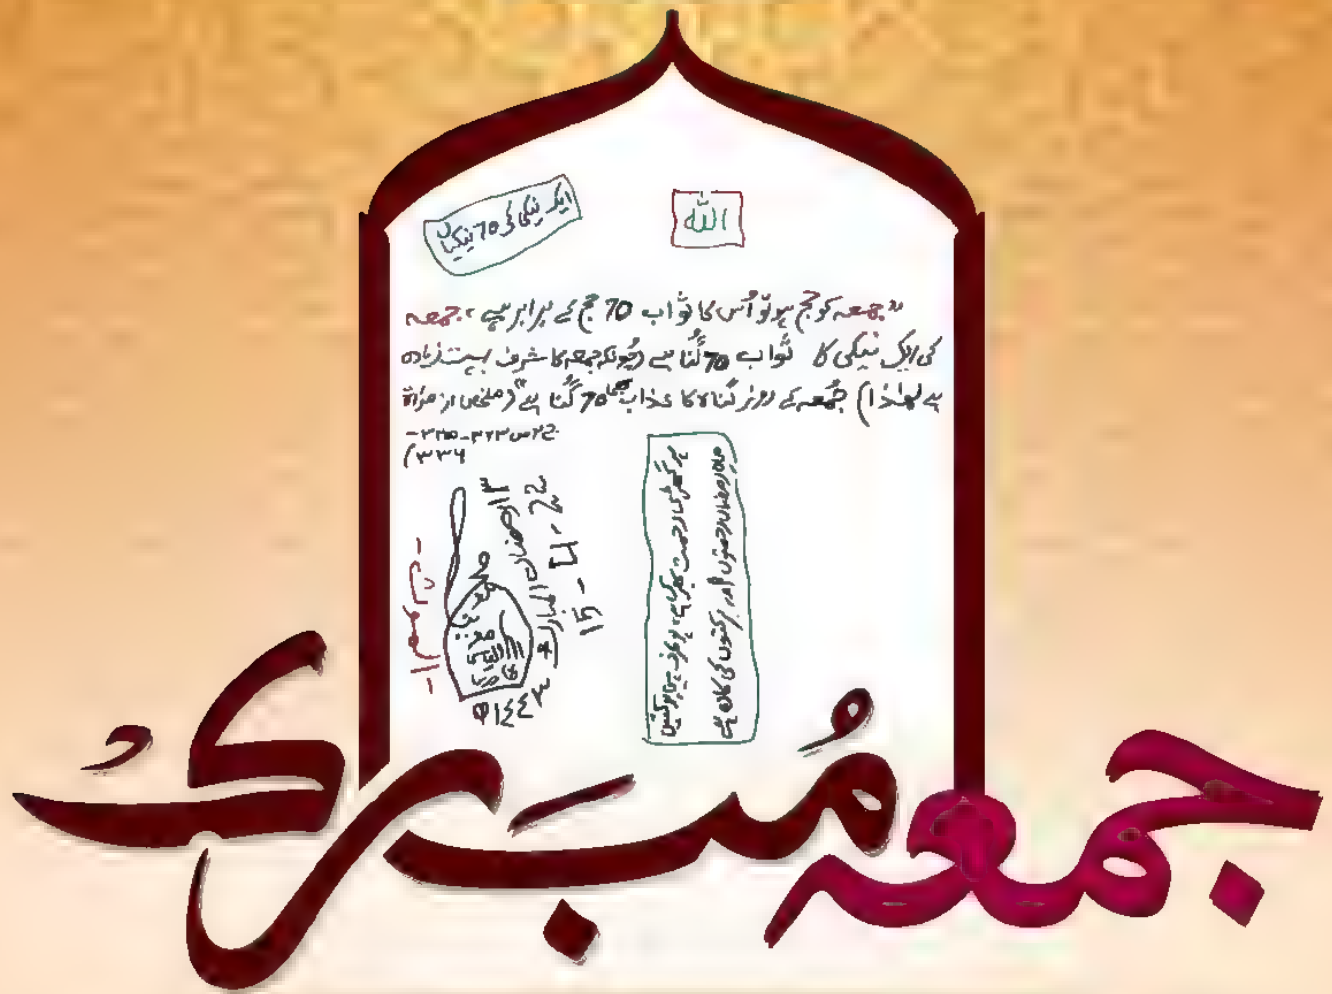 اللہ
ایک نیکی کی 70 نیکیاں
"جمعہ کو حج ہو تو اُس کا ثواب 70 حج کے برابر ہے، جمعہ
کی ایک نیکی کا ثواب 70 گنا ہے (چونکہ جمعہ کا شرف بہت زیادہ
ہے لھٰذا) جُمعہ کے روز گناہ کا عذاب بھی 70 گُنا ہے" (ملخص از مراٰۃ
ج۲ ص ۳۲۳-۳۲۵-
۳۳۶)
ہر گھڑی رحمت بھری ہے، ہر طرف ہیں برکتیں
ماہِ رمضان رحمتوں اور برکتوں کی کان ہے
۱۳ رمضان المبارک
۱٤٤۳ھ
15-4-22
جمعہ مُبارک